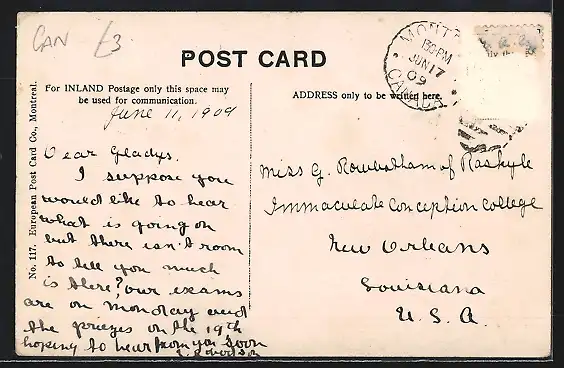 CAN £3
POST CARD
For INLAND Postage only this space may
be used for communication.
ADDRESS only to be written here.
MONT
1:30 PM
JUN 17
09
CANADA
No. 117. European Post Card Co., Montreal.
June 11, 1909
Dear Gladys.
I suppose you
would like to hear
what is going on
but there isn't room
to tell you much
is there? our exams
are on monday and
the prizes on the 19th
hoping to hear from you soon
Miss G. Rowbotham of
Immaculate Conception College
New Orleans
Louisiana
U. S. A.